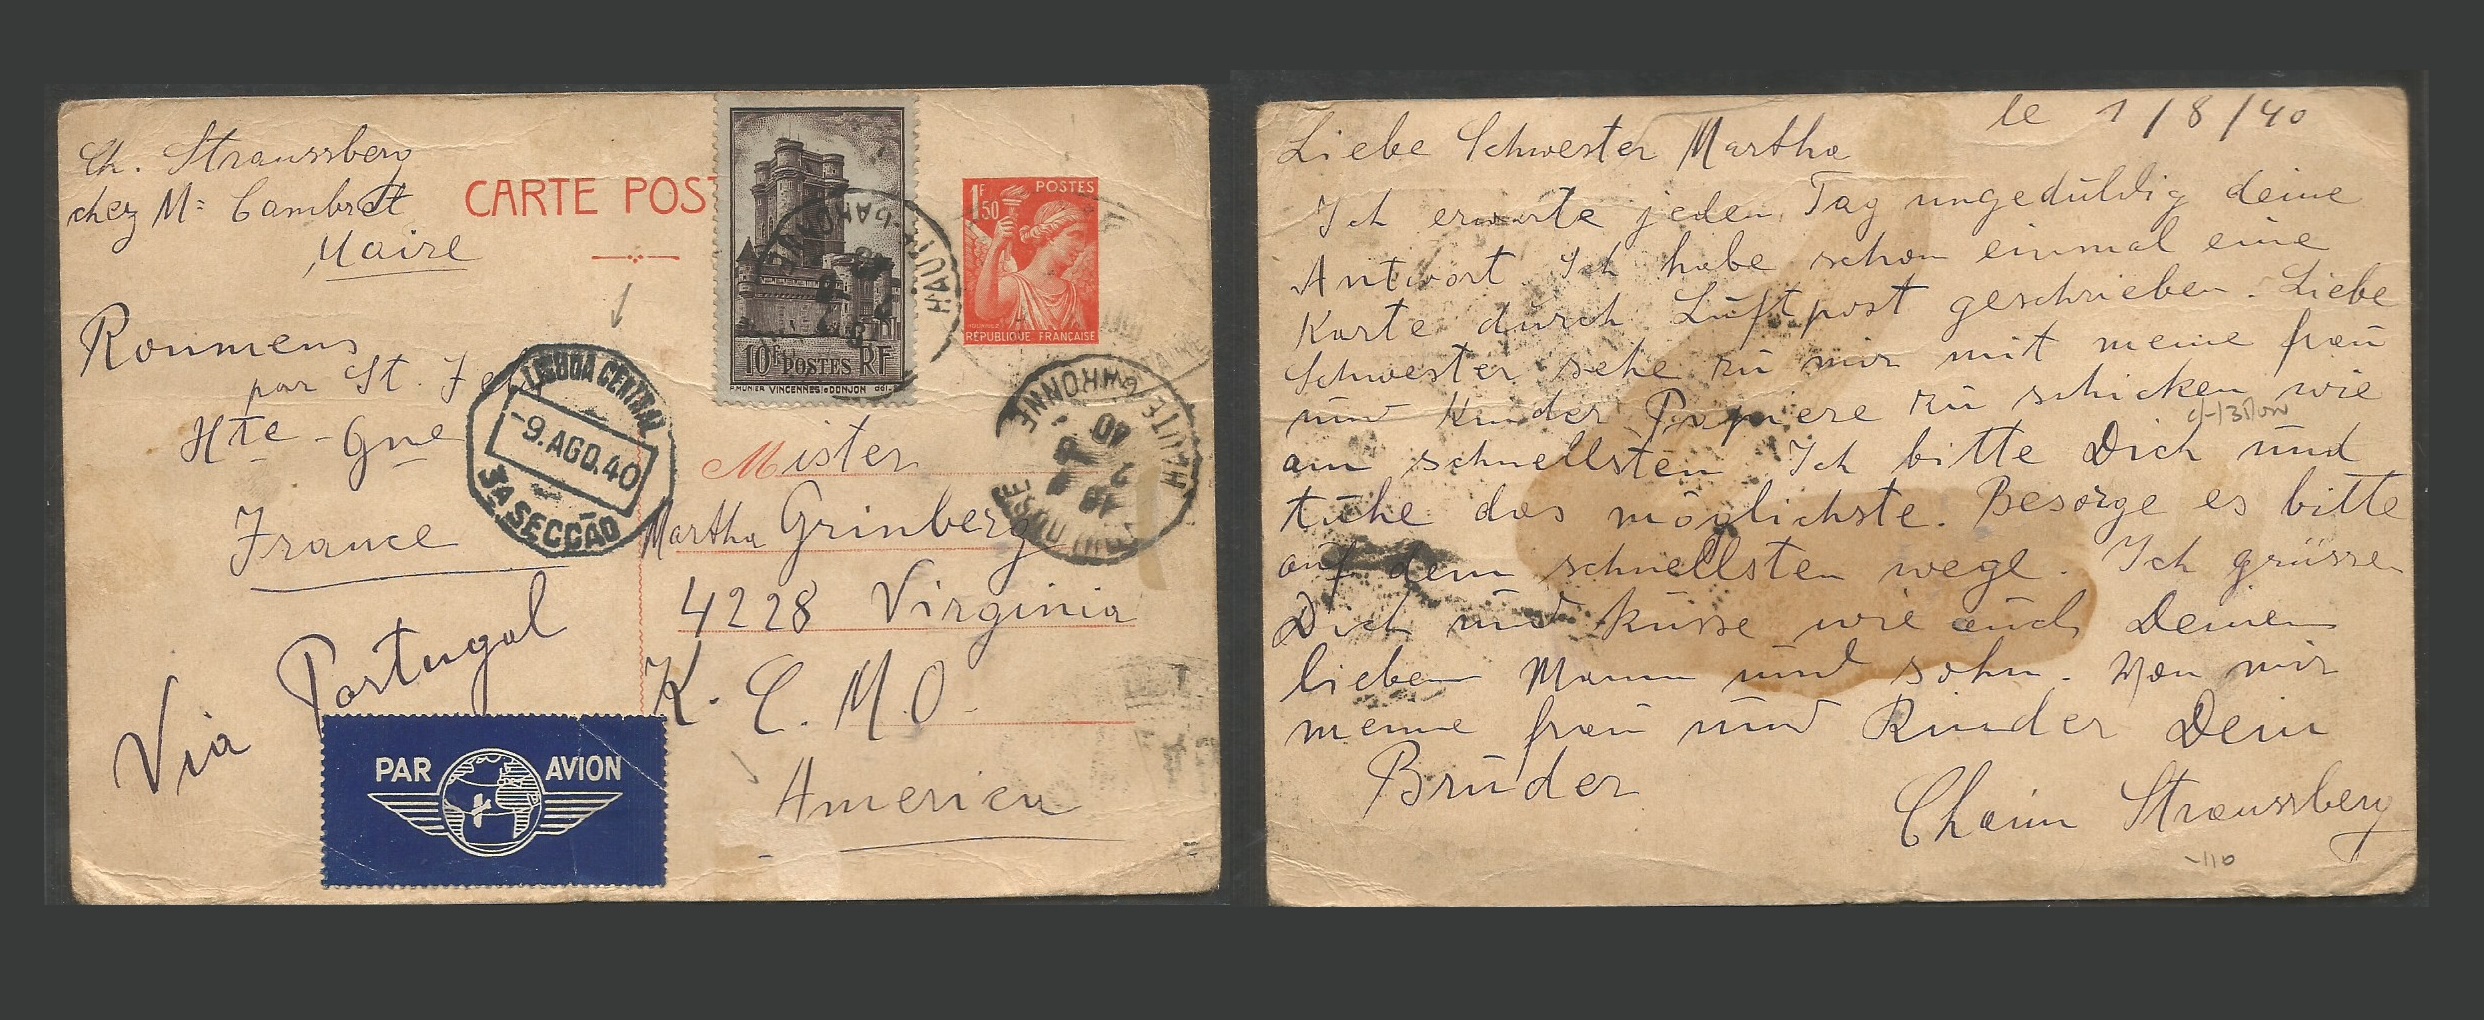 Ch. Straussberg
chez Mr Cambret
Maire
Roumens
par St.
Hte - Gne
France
Via Portugal
PAR AVION
CARTE POST
10F POSTES RF
P.MUNIER VINCENNES-le DONJON del.
1F50 POSTES
RÉPUBLIQUE FRANÇAISE
HAUTE GARONNE
LISBOA CENTRAL
-9.AGO.40
3A SECCÃO
HAUTE GARONNE
Mister
Martha Grinberg
4228 Virginia
K. C. M.O.
America
le 1/8/40
Liebe Schwester Martha
Ich erwarte jeden Tag ungedüldig deine
Antwort. Ich habe schon einmal eine
Karte durch Lüftpost geschrieben. Liebe
Schwester sehe zü mir mit meine fraü
ünd Kinder Papiere zü schicken wie
am schnellsten. Ich bitte Dich ünd
tühe das möglichste. Besorge es bitte
auf dem schnellsten wege. Ich grüsse
Dich ünd küsse wie aüch Deinen
lieben Mann ünd sohn. Von mir
meine fraü ünd Kinder Dein
Brüder
Chaim Straussberg
-110